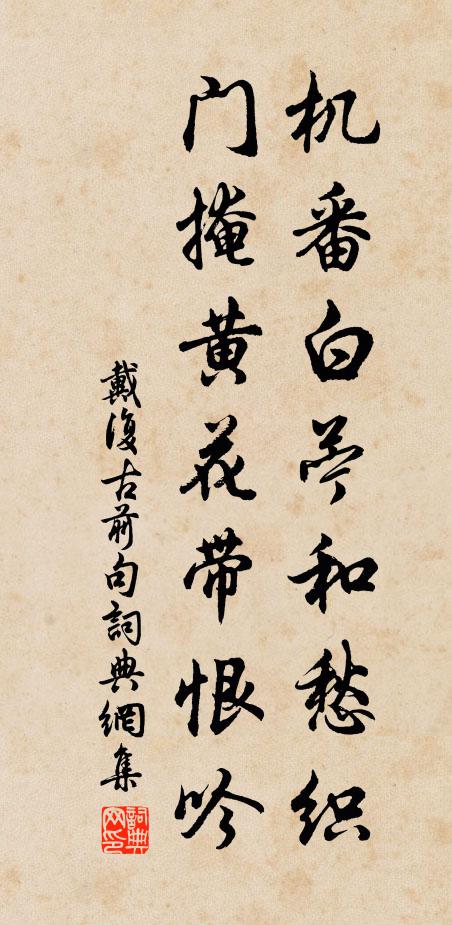 机番白苧和愁织
门掩黄花带恨吟
戴復古前句詞典網集
詞典网印